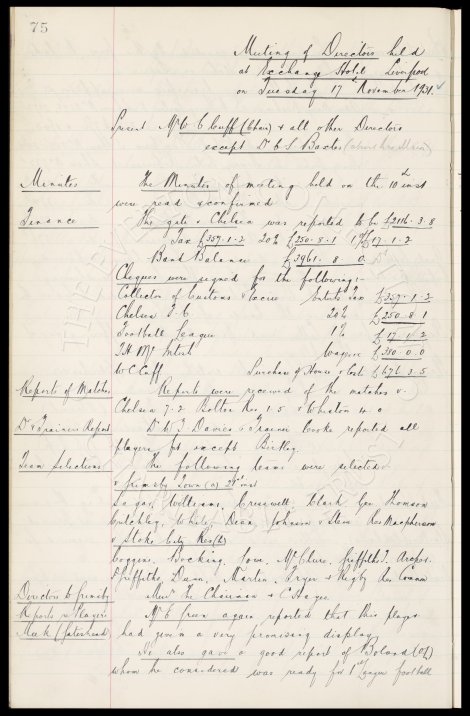 75
Meeting of Directors held
at Exchange Hotel Liverpool
on Tuesday 17th November 1931.
Present Mr W C Cuff (Chair) & all other Directors
except Dr C S Baxter
Minutes
The Minutes of meeting held on the 10th inst
were read & confirmed
Finance
The gate v Chelsea was reported to be £2116.3.8
Tax £357.1.2 20% £250.8.1 1% £17.1.2
Bank Balance £3961.8.0
Cheques were signed for the following:-
Collector of Customs & Excise Ents Tax £357.1.2
Chelsea F.C 20% £250.8.1
Football League 1% £17.1.2
T.H. McIntosh Wages £350.0.0
W C Cuff Purchase of House & Cost £676.3.5
Report of Matches
Reports were received of the matches v.
Chelsea 7.2 Bolton Res 1.5 & Wheaton 4.0
Dr & Trainers Report
Dr W J Davies & Trainer Cooke reported all
players fit except Birtley.
Team Selections
The following teams were selected
v Grimsby Town (a) 21st inst
Sagar, Williams, Cresswell, Clark, Gee, Thomson
Critchley, White, Dean, Johnson & Stein Res Macpherson
v Stoke City Res (h)
Coggins, Bocking, Lowe, McClure, Griffiths T. Archer.
P Griffiths, Dunn, Martin, Fryer & Rigby Res Common
Directors to Grimsby
Mess The Chairman & C Hayes
Reports re Players
Mr E Green again reported that this player
Meek (Gateshead)
had given a very promising display
He also gave a good report of Boland (OL)
whom he considered was ready for 1st League football